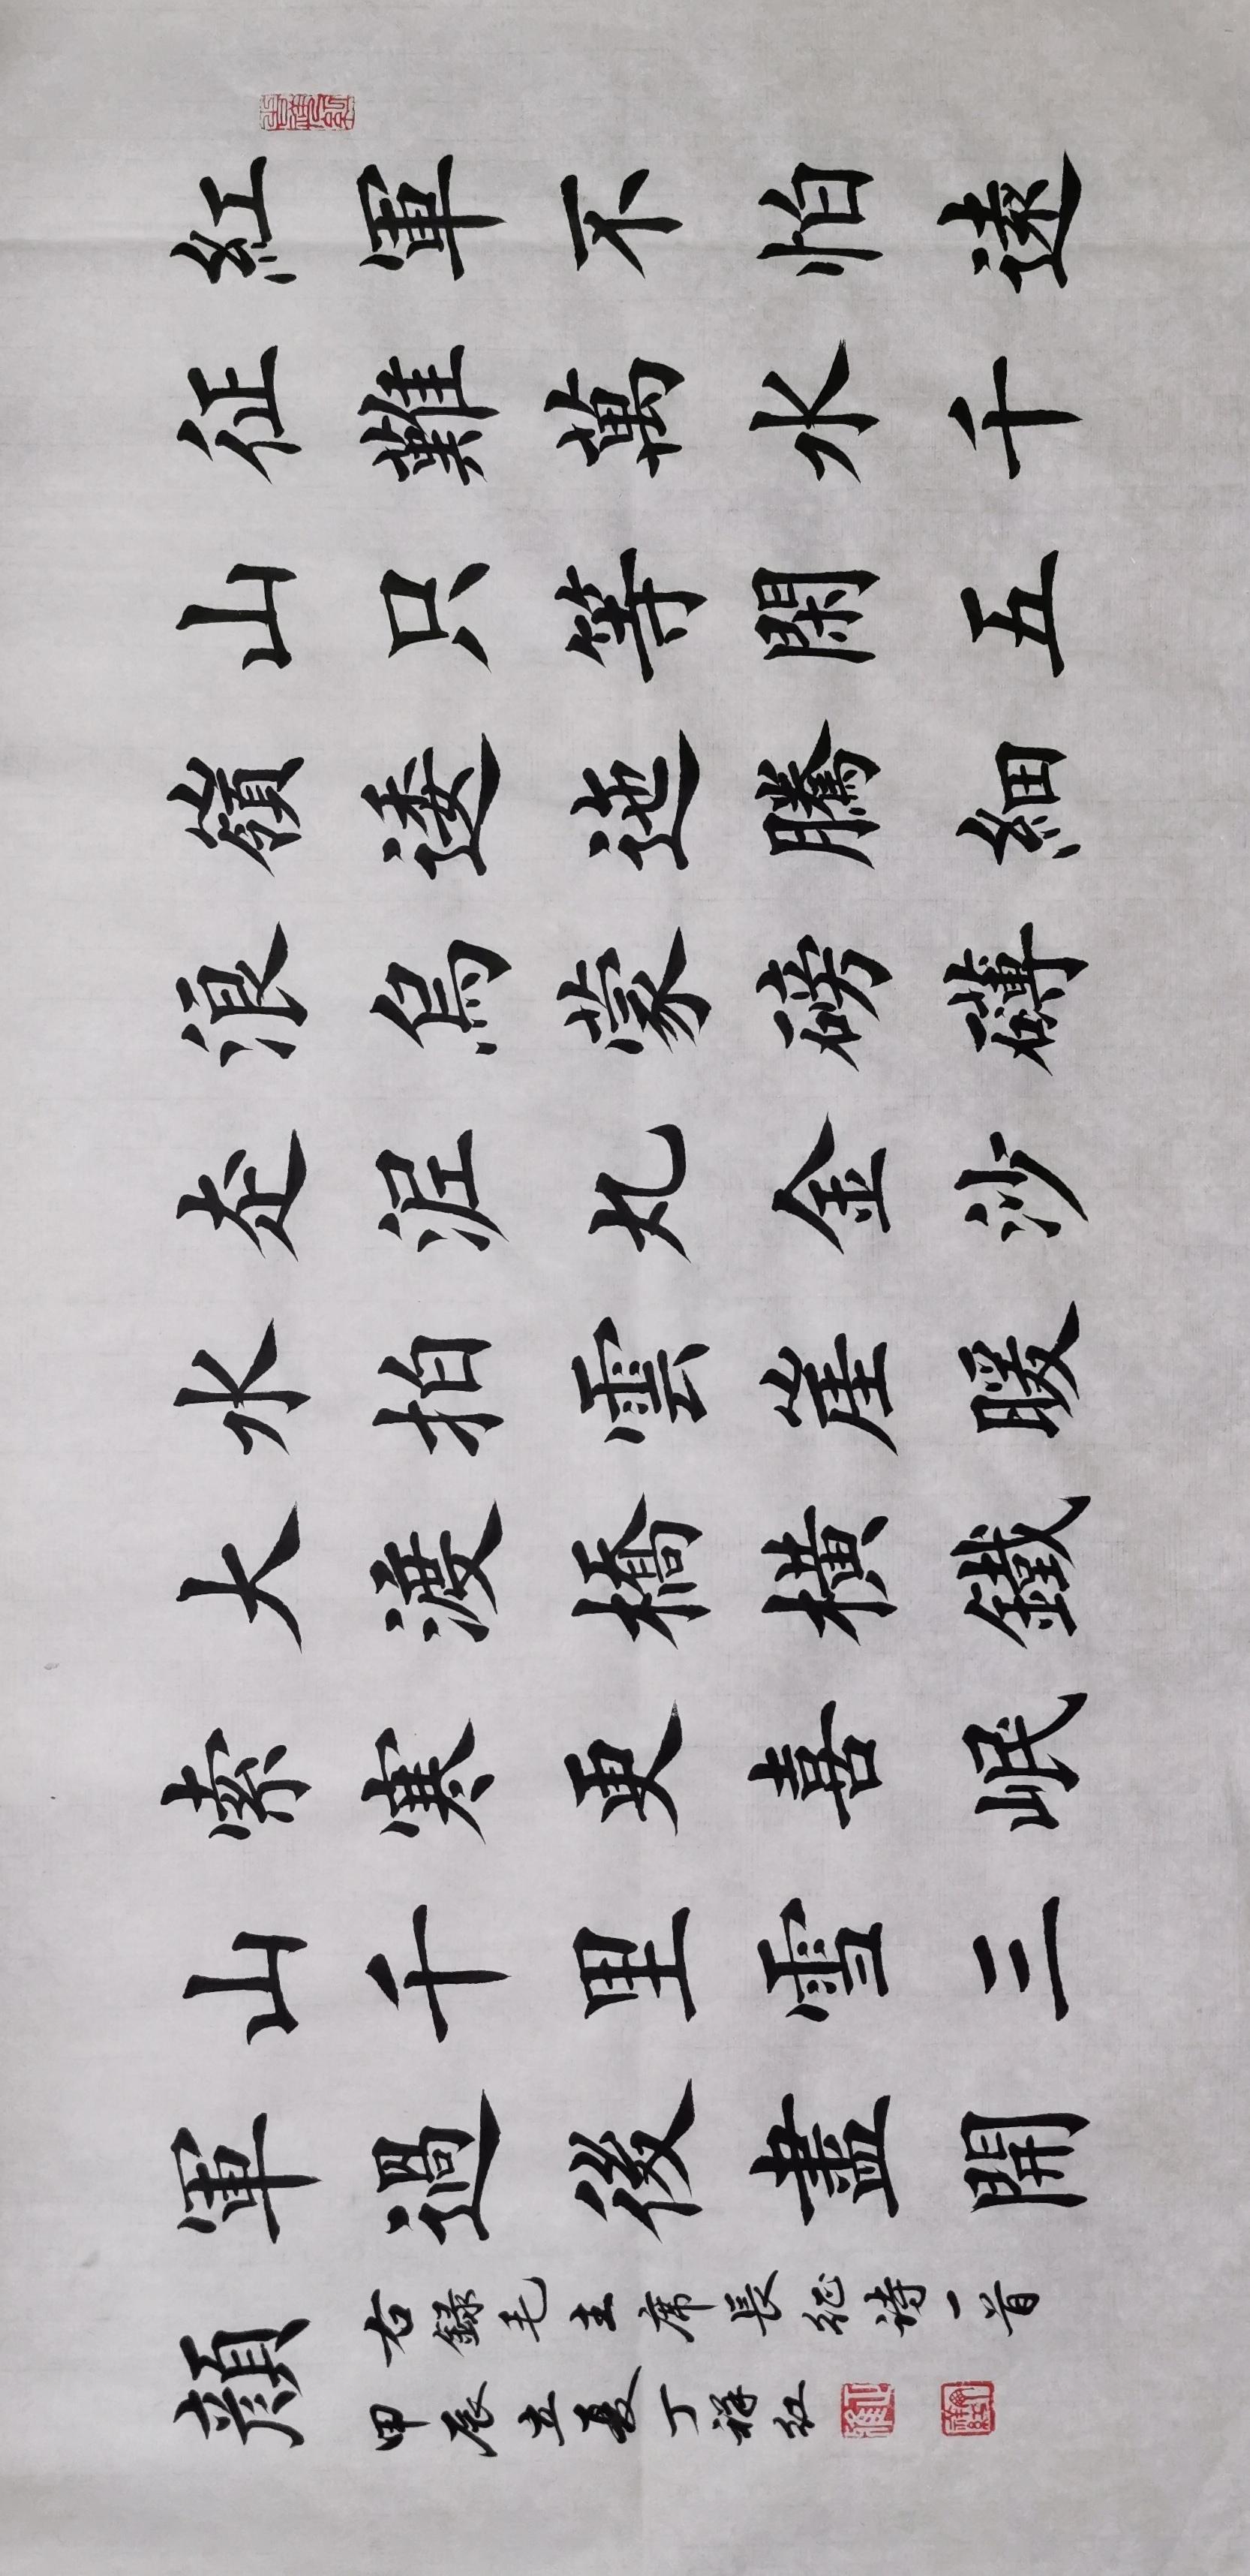 紅軍不怕遠
征難萬水千
山只等閑五
嶺逶迤騰細
浪烏蒙磅礴
走泥丸金沙
水拍雲崖暖
大渡橋橫鐵
索寒更喜岷
山千里雪三
軍過後盡開
顏
右錄毛主席長征诗一首
甲辰立夏丁祥红